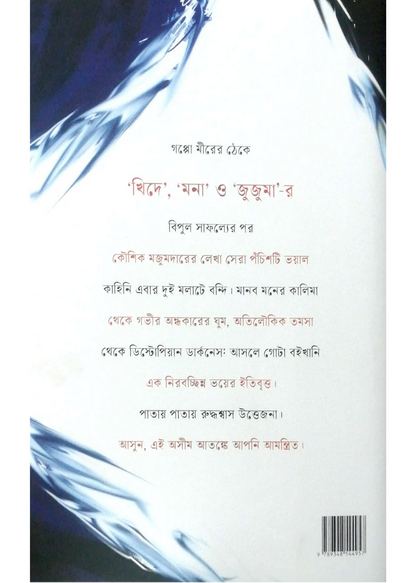 গপ্পো মীরের ঠেকে
‘খিদে’, ‘মনা’ ও ‘জুজুমা’-র
বিপুল সাফল্যের পর
কৌশিক মজুমদারের লেখা সেরা পঁচিশটি ভয়াল
কাহিনি এবার দুই মলাটে বন্দি। মানব মনের কালিমা
থেকে গভীর অন্ধকারের ঘুম, অতিলৌকিক তমসা
থেকে ডিস্টোপিয়ান ডার্কনেস: আসলে গোটা বইখানি
এক নিরবচ্ছিন্ন ভয়ের ইতিবৃত্ত।
পাতায় পাতায় রুদ্ধশ্বাস উত্তেজনা।
আসুন, এই অসীম আতঙ্কে আপনি আমন্ত্রিত।
9 789348 544957